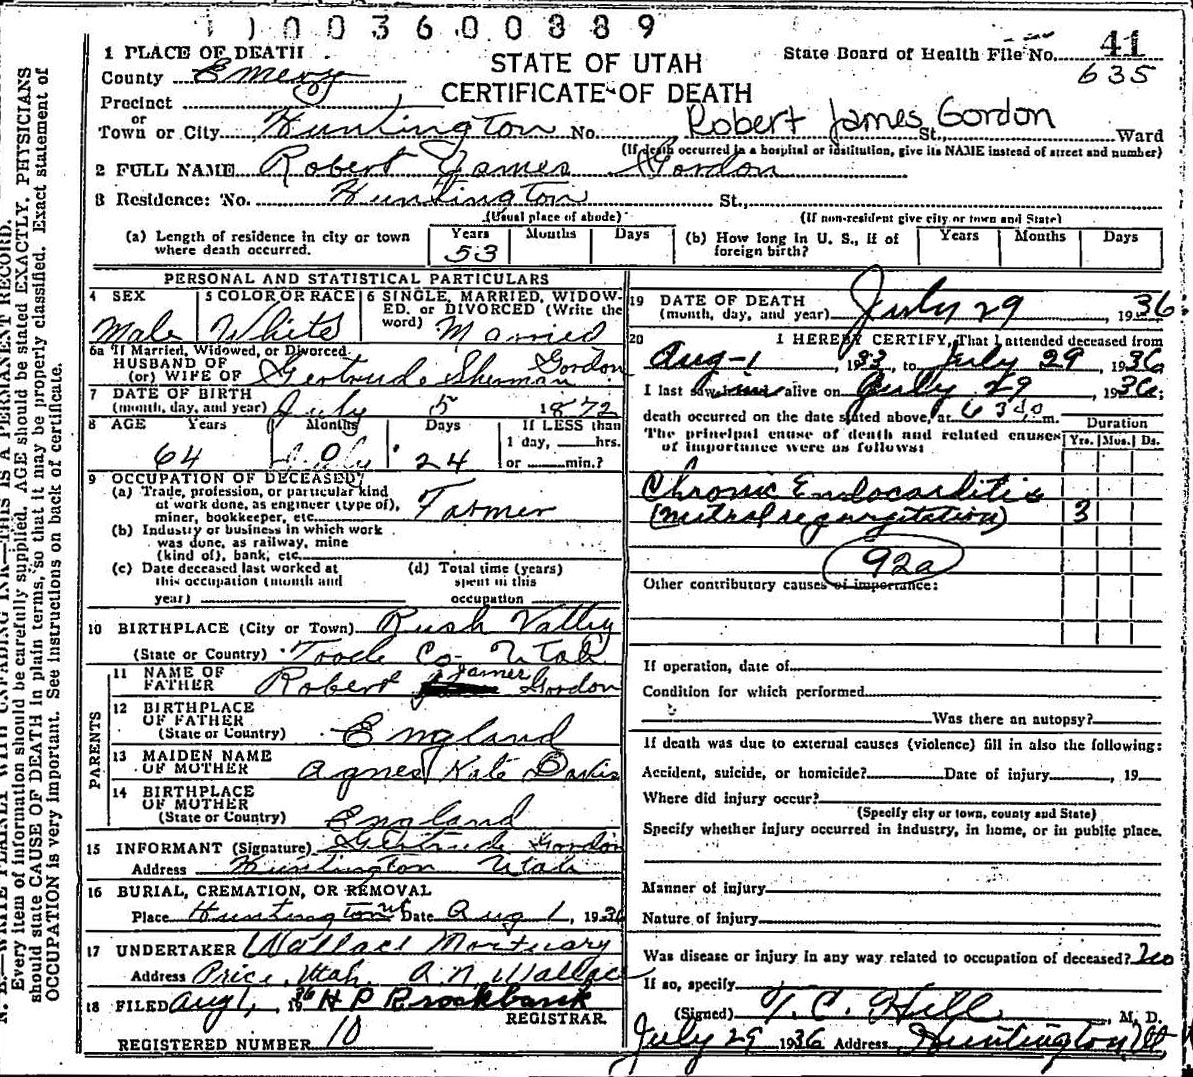 11003600889
1 PLACE OF DEATH
STATE OF UTAH
CERTIFICATE OF DEATH
State Board of Health File No. 41
635
County Emery
Precinct
or
Town or City Huntington No. Robert James Gordon St., Ward
(If death occurred in a hospital or institution, give its NAME instead of street and number)
2 FULL NAME Robert James Gordon
3 Residence: No. Huntington St.,
(Usual place of abode) (If non-resident give city or town and State)
(a) Length of residence in city or town where death occurred. Years 53 Months Days
(b) How long in U. S., if of foreign birth? Years Months Days
PERSONAL AND STATISTICAL PARTICULARS
4 SEX Male
5 COLOR OR RACE White
6 SINGLE, MARRIED, WIDOWED, OR DIVORCED (Write the word) Married
6a If Married, Widowed, or Divorced
HUSBAND OF
(or) WIFE OF Gertrude Sherman Gordon
7 DATE OF BIRTH
(month, day, and year) July 5 1872
8 AGE Years 64 Months 0 Days 24
If LESS than
1 day, ___hrs.
or ___min.?
9 OCCUPATION OF DECEASED
(a) Trade, profession, or particular kind
of work done, as engineer (type of),
miner, bookkeeper, etc. Farmer
(b) Industry or business in which work
was done, as railway, mine
(kind of), bank, etc.
(c) Date deceased last worked at
this occupation (month and
year)
(d) Total time (years)
spent in this
occupation
10 BIRTHPLACE (City or Town) Rush Valley
(State or Country) Tooele Co Utah
PARENTS
11 NAME OF
FATHER Robert James Gordon
12 BIRTHPLACE
OF FATHER
(State or Country) England
13 MAIDEN NAME
OF MOTHER Agnes Kate Davis
14 BIRTHPLACE
OF MOTHER
(State or Country) England
15 INFORMANT (Signature) Gertrude Gordon
Address Huntington Utah
16 BURIAL, CREMATION, OR REMOVAL
Place Huntington Ut Date Aug 1, 1936
17 UNDERTAKER Wallace Mortuary
Address Price, Utah. A. N. Wallace
18 FILED Aug 1, 1936 H P Brockbank
REGISTRAR
REGISTERED NUMBER 10
19 DATE OF DEATH
(month, day, and year) July 29, 1936
20 I HEREBY CERTIFY, That I attended deceased from
Aug-1, 1933, to July 29, 1936
I last saw him alive on July 29, 1936;
death occurred on the date stated above, at m.
The principal cause of death and related causes
of importance were as follows:
Duration
Yrs. Mos. Ds.
Chronic Endocarditis
(mitral regurgitation) 3
92a
Other contributory causes of importance:
If operation, date of
Condition for which performed
Was there an autopsy?
If death was due to external causes (violence) fill in also the following:
Accident, suicide, or homicide? Date of injury , 19
Where did injury occur?
(Specify city or town, county and State)
Specify whether injury occurred in industry, in home, or in public place.
Manner of injury
Nature of injury
Was disease or injury in any way related to occupation of deceased? No
If so, specify
(Signed) T. C. Hill, M. D.
July 29 1936 Address Huntington Ut
N. B.—WRITE PLAINLY WITH UNFADING INK—THIS IS A PERMANENT RECORD.
Every item of information should be carefully supplied. AGE should be stated EXACTLY. PHYSICIANS
should state CAUSE OF DEATH in plain terms, so that it may be properly classified. Exact statement of
OCCUPATION is very important. See instructions on back of certificate.